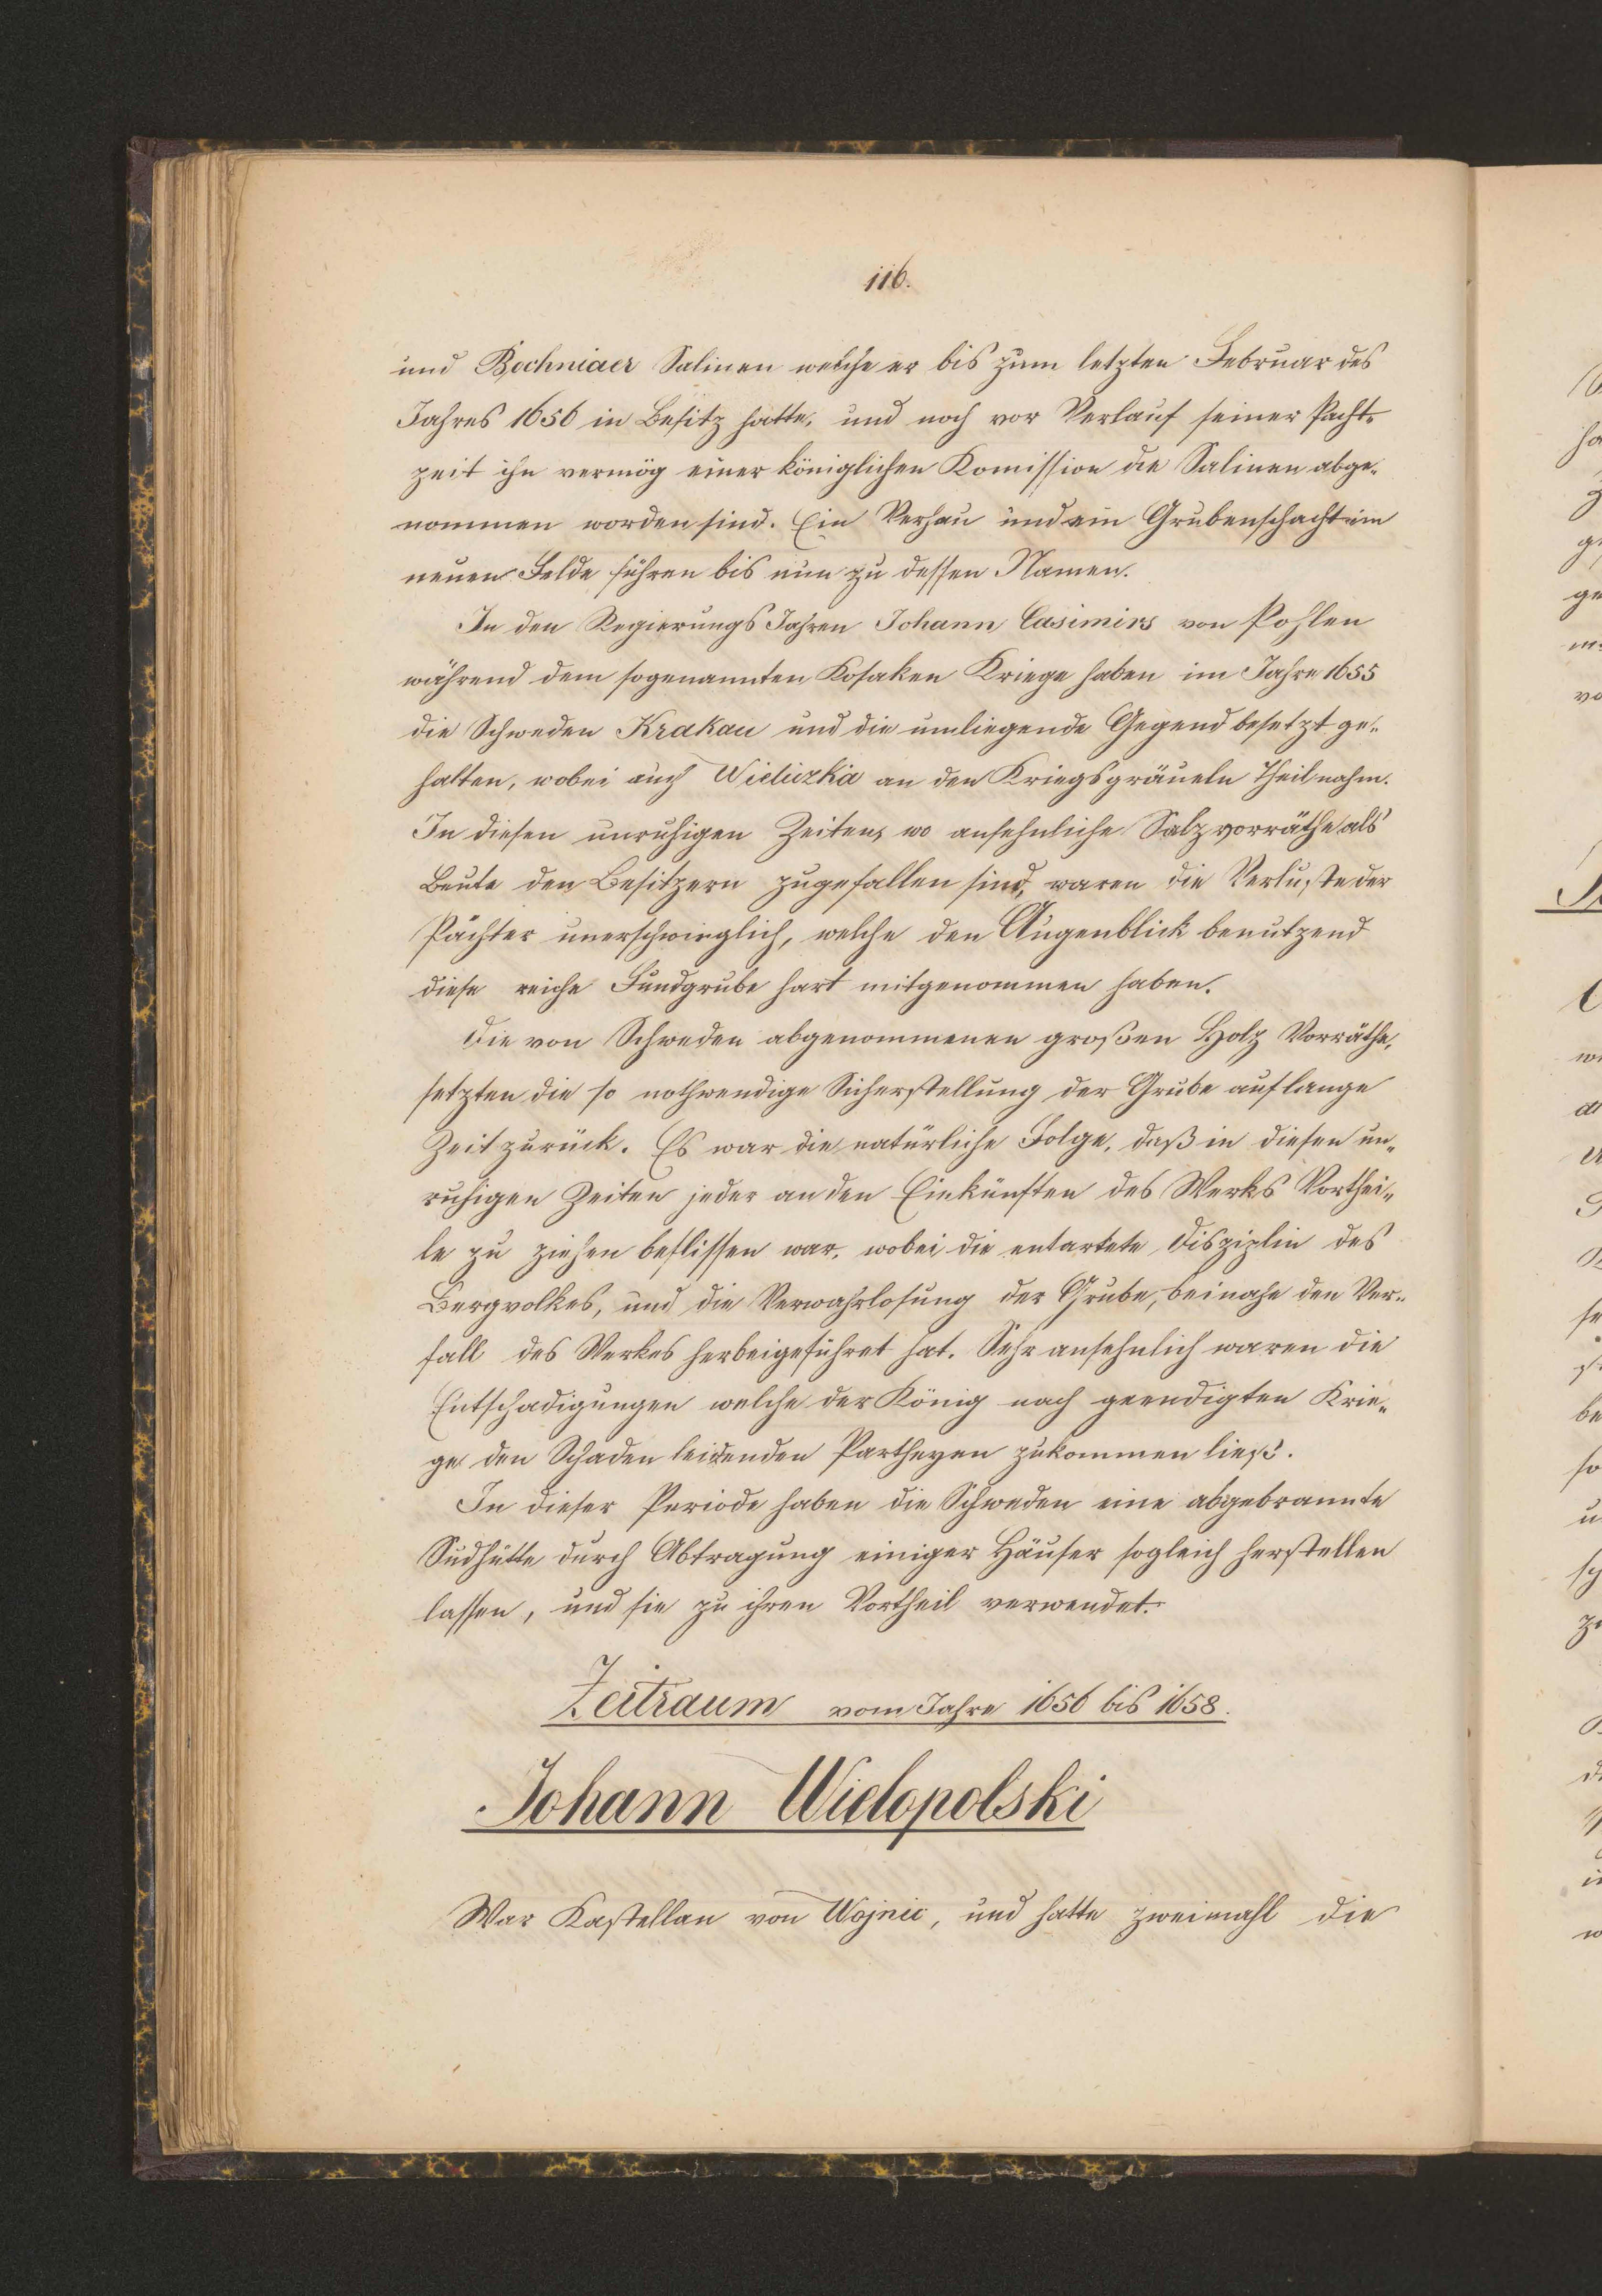 116.
und Bochniaer Salinen welche er bis zum letzten Februar des
Jahres 1656 in Besitz hatte, und noch vor Verlauf seiner Pacht-
zeit ihn vermög einer königlichen Komission die Salinen abge-
nommen worden sind. Ein Verhau und ein Grubenschacht im
neuen Felde führen bis nun zu dessen Namen.
In den Regierungs Jahren Johann Casimirs von Pohlen
während dem sogenannten Kosaken Kriege haben im Jahre 1655
die Schweden Krakau und die umliegende Gegend besetzt ge-
halten, wobei auch Wieliczka an den Kriegsgräueln Theil nahm.
In diesen unruhigen Zeiten, wo ansehnliche Salzvorräthe als
Beute den Besitzern zugefallen sind, waren die Verluste der
Pächter unerschwinglich, welche den Augenblick benutzend
diese reiche Fundgrube hart mitgenommen haben.
Die von Schweden abgenommenen großen Holz Vorräthe,
setzten die so nothwendige Sicherstellung der Grube auf lange
Zeit zurück. Es war die natürliche Folge, daß in diesen un-
ruhigen Zeiten jeder an den Einkünften des Werks Vorthei-
le zu ziehen beflissen war, wobei die entartete Disziplin des
Bergvolkes, und die Verwahrlosung der Grube, beinahe den Ver-
fall des Werkes herbeigeführet hat. Sehr ansehnlich waren die
Entschadigungen welche der König nach geendigten Krie-
ge den Schaden leidenden Partheyen zukommen ließ.
In dieser Periode haben die Schweden eine abgebrannte
Sudhütte durch Abtragung einiger Häuser sogleich herstellen
lassen, und sie zu ihren Vortheil verwendet.
Zeitraum vom Jahre 1656 bis 1658.
Johann Wielopolski
War Kastellan von Wojnic, und hatte zweimahl die